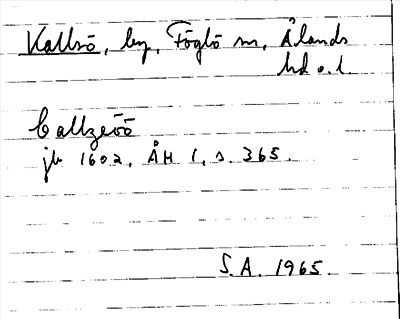 Kallsö, by, Föglö sn, Ålands
hd o. l.
Callzeöö
jb 1602, ÅH 1, s. 365.
S.A. 1965.